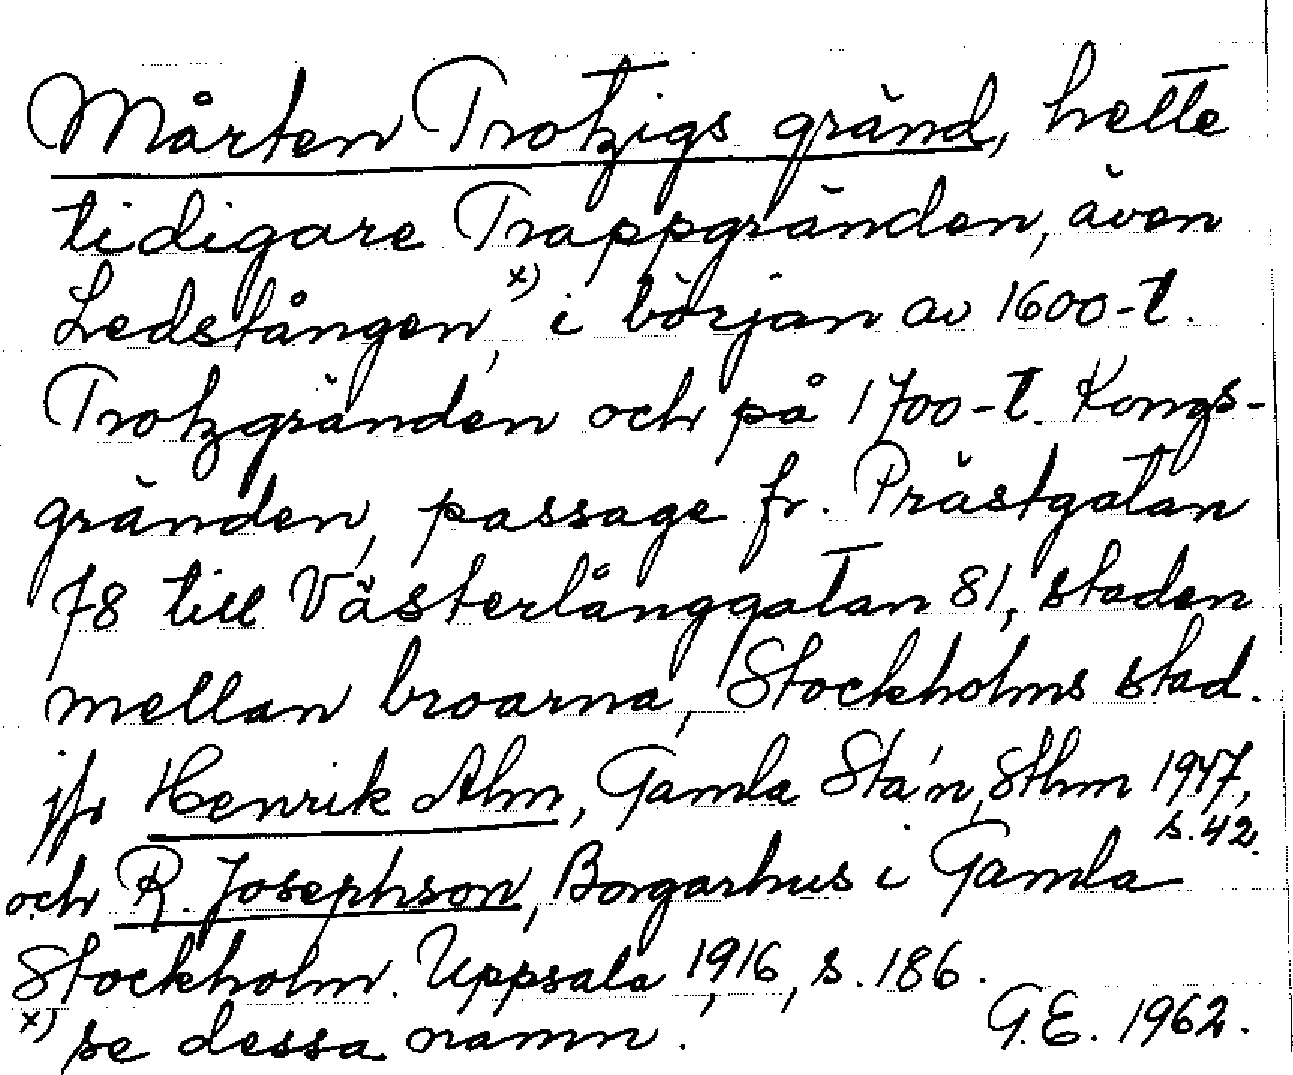 Mårten Trotzigs gränd, hette
tidigare Trappgränden, även
Ledstången,x) i början av 1600-t.
Trotzgränden och på 1700-t. Kongs-
gränden, passage fr. Prästgatan
78 till Västerlånggatan 81, staden
mellan broarna, Stockholms stad.
jfr Henrik Alm, Gamla Sta'n, Sthm 1947,
s. 42.
och R. Josephson, Borgarhus i Gamla
Stockholm. Uppsala 1916, s. 186.
x) se dessa namn. G.E. 1962.